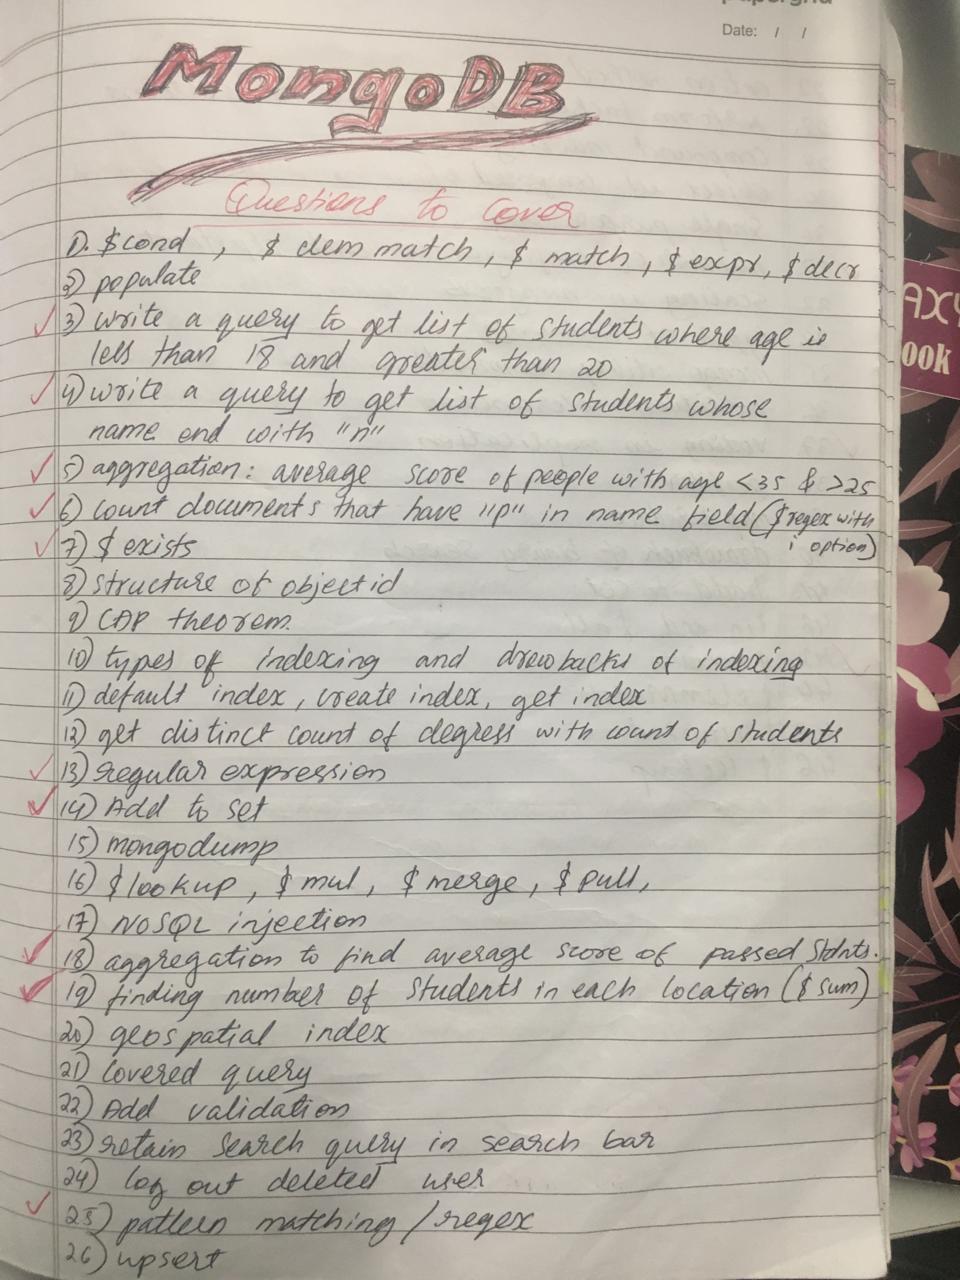 Date: / /
MongoDB
Questions to Cover
1). $cond , $ elem match , $ match , $ expr, $ decr
2) populate
3) write a query to get list of students where age is
less than 18 and greater than 20
4) write a query to get list of students whose
name end with "n"
5) aggregation : average score of people with age <35 & >25
6) count documents that have "p" in name field ($regex with
i option)
7) $ exists
8) structure of objectid
9) CAP theorem.
10) types of indexing and drawbacks of indexing
11) default index , create index, get index
12) get distinct count of degress with count of students
13) regular expression
14) Add to set
15) mongodump
16) $lookup , $ mul , $ merge , $ pull,
17) NOSQL injection
18) aggregation to find average score of passed Stdnts.
19) finding number of students in each location ($ sum)
20) geospatial index
21) covered query
22) Add validation
23) retain search query in search bar
24) log out deleted user
25) pattern matching / regex
26) upsert
AXY
ook